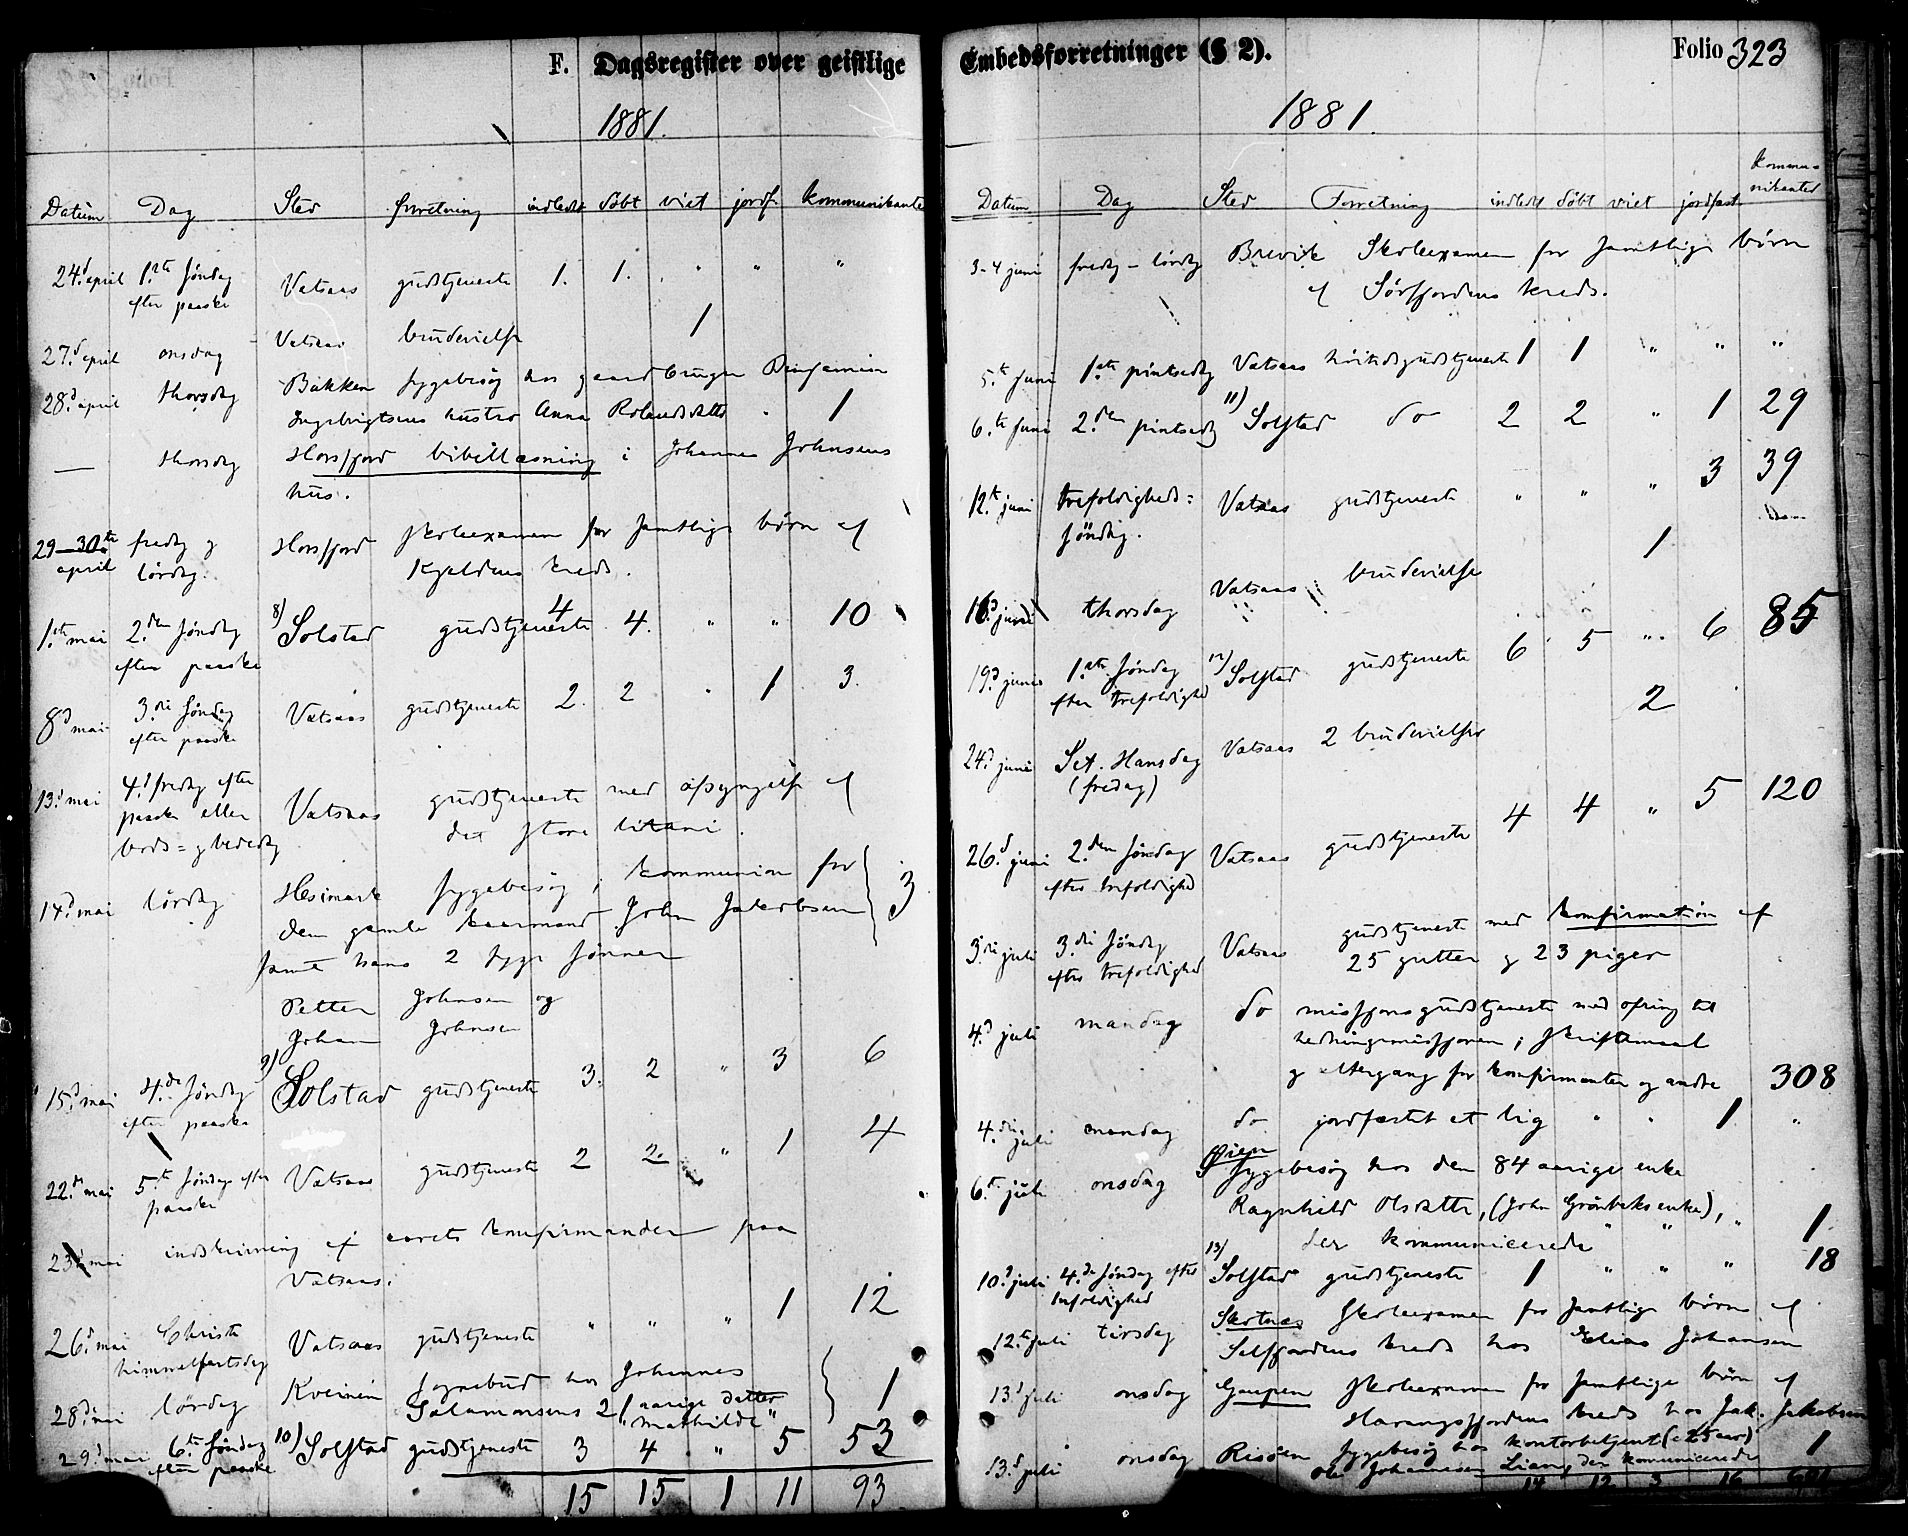 F. Dagsregister over geistlige
1881.
Datum Dag Sted forretning indledet döbt viet jordf. kommunikanter
24.d april 1.ste söndag efter paaske Vatsaas gudstjeneste 1. 1. " " "
27.d april onsdag Vatsaas brudevielse 1
28.d april thorsdag Bakken sygebesög hos gaardbruger Benjamin
Ingebrigtsens hustro Anna Rolandsdatter " 1
— thorsdag Horsfjord bibellæsning i Johannes Johnsens
hus.
29–30te april fredag og lördag. Horsfjord skoleexamen for samtlige börn af
Kjeldens kreds.
1.ste mai 2.den söndag efter paaske 8) Solstad gudstjeneste 4 4. " " 10
8.d mai 3.die söndag efter paaske Vatsaas gudstjeneste 2. 2 " 1 3.
13.d mai 4.d fredag efter paaske eller bods= og bededag Vatsaas gudstjeneste med afsyngelse af
det store litani.
14.d mai lördag Hesimark sygebesög, kommunion for
den gamle kaarmand John Jakobsen 3
samt hans 2 syge sönner
Petter Johnsen og
Johan Johnsen
15.d mai 4.de söndag efter paaske 9) Solstad gudstjeneste 3. 2 " 3 6
22.d mai 5.te söndag efter paaske Vatsaas gudstjeneste 2 2. " 1 4
23.d mai indskrivning af aarets konfirmander paa
Vatsaas.
26.d mai Christi himmelfartsdag Vatsaas gudstjeneste " " " 1 12
28.d mai lördag Kveinen sognebud hos Johannes
Salamonsens 21 aarige datter 1
"Mathilde"
29.d mai 6.te söndag efter paaske 10) Solstad gudstjeneste 3 4 " 5 53
15 15 1 11 93
Embedsforretninger (§ 2).
Folio 323
1881.
Datum Dag Sted Forretning indledt döbt viet jordfæst kommunikanter
3–4 juni fredag – lördag Brevik Skoleexamen for samtlige börn
af Sörfjordens kreds.
5.te juni 1.ste pintsedag Vatsaas höitidsgudstjeneste 1 1 " " "
6.te juni 2.den pintsedag 11) Solstad do 2 2 " 1 29
12.te juni trefoldigheds= söndag. Vatsaas gudstjeneste " " " 3 39
16.d juni thorsdag Vatsaas brudevielse 1
19.d juni 1.ste söndag efter trefoldighed 12) Solstad gudstjeneste 6 5 " 6 85
24.d juni Sct. Hansdag (fredag) Vatsaas 2 brudevielser 2
26.d juni 2.den söndag efter trefoldighed Vatsaas gudstjeneste 4 4 " 5 120
3.die juli 3.die söndag efter trefoldighed Vatsaas gudstjeneste med konfirmation af
25 gutter og 23 piger
4.d juli mandag do missjonsgudstjeneste med ofring til
hedningemissjonen; skriftemaal
og altergang for konfirmanter og andre 308
4.die juli mandag do jordfæstet et lig " " 1 "
6.te juli onsdag Öien sygebesög hos den 84 aarige enke
Ragnhild Olsdatter, (John Grönbeks enke), "
der kommunicerede " " 1
10.d juli 4.de söndag efter trefoldighed 13) Solstad gudstjeneste 1 " " " 18
12.te juli tirsdag Skotnæs Skoleexamen for samtlige börn af
Selfjordens kreds hos Elias Johansen
13.d juli onsdag Gaupen Skoleexamen for samtlige börn af
Harangsfjordens kreds hos Jak. Jakobsen
13.d juli onsdag Risöen sygebesög hos kontorbetjent (c 25 aar)
Ole Johannesen Lian, der kommunicerede 1
14 12 3 16 601